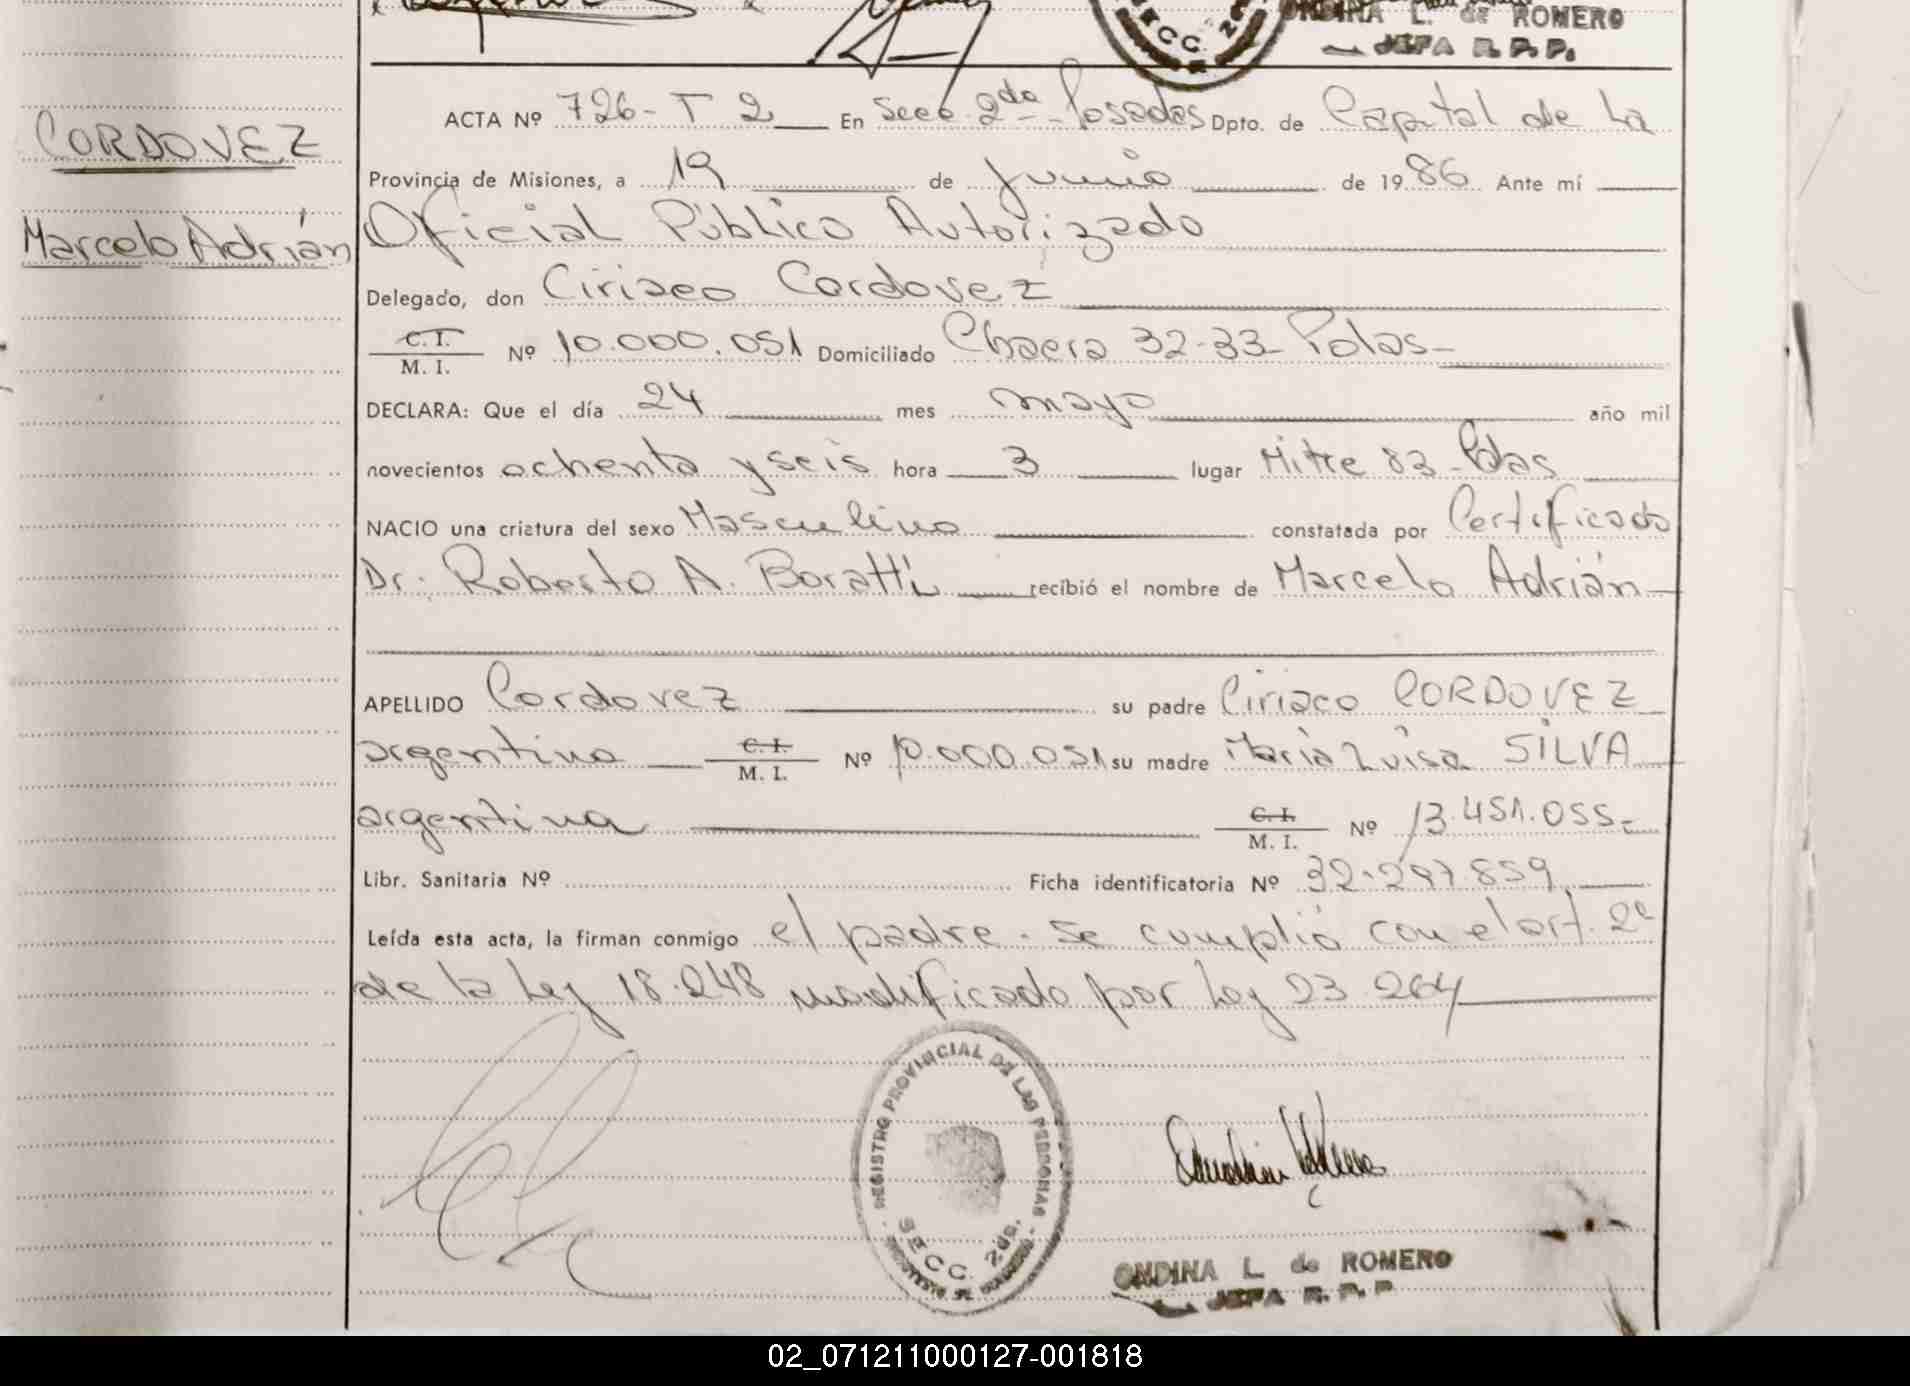 ONDINA L. de ROMERO
JEFA R. P. P.
SECC. 2da.
CORDOVEZ
Marcelo Adrián
ACTA Nº 726 - T 2 En Secc. 2da Posadas Dpto. de Capital de La
Provincia de Misiones, a 19 de junio de 1986 Ante mí
Oficial Público Autorizado
Delegado, don Ciriaco Cordovez
C. I. M. I. Nº 10.000.051 Domiciliado Chacra 32-33 Pdas-
DECLARA: Que el día 24 mes mayo año mil
novecientos ochenta y seis hora 3 lugar Mitre 83-Pdas
NACIO una criatura del sexo Masculino constatada por Certificado
Dr. Roberto A. Boratti recibió el nombre de Marcelo Adrián
APELLIDO Cordovez su padre Ciriaco CORDOVEZ
argentino C. I. M. I. Nº 10.000.051 su madre María Luisa SILVA
argentina C. I. M. I. Nº 13.451.055-
Libr. Sanitaria Nº Ficha identificatoria Nº 32.297.859
Leída esta acta, la firman conmigo el padre. Se cumplió con el art. 2º
de la Ley 18.248 modificado por Ley 23.264
REGISTRO PROVINCIAL DE LAS PERSONAS
SECC. 2da.
ONDINA L. de ROMERO
JEFA R. P. P.
02_071211000127-001818